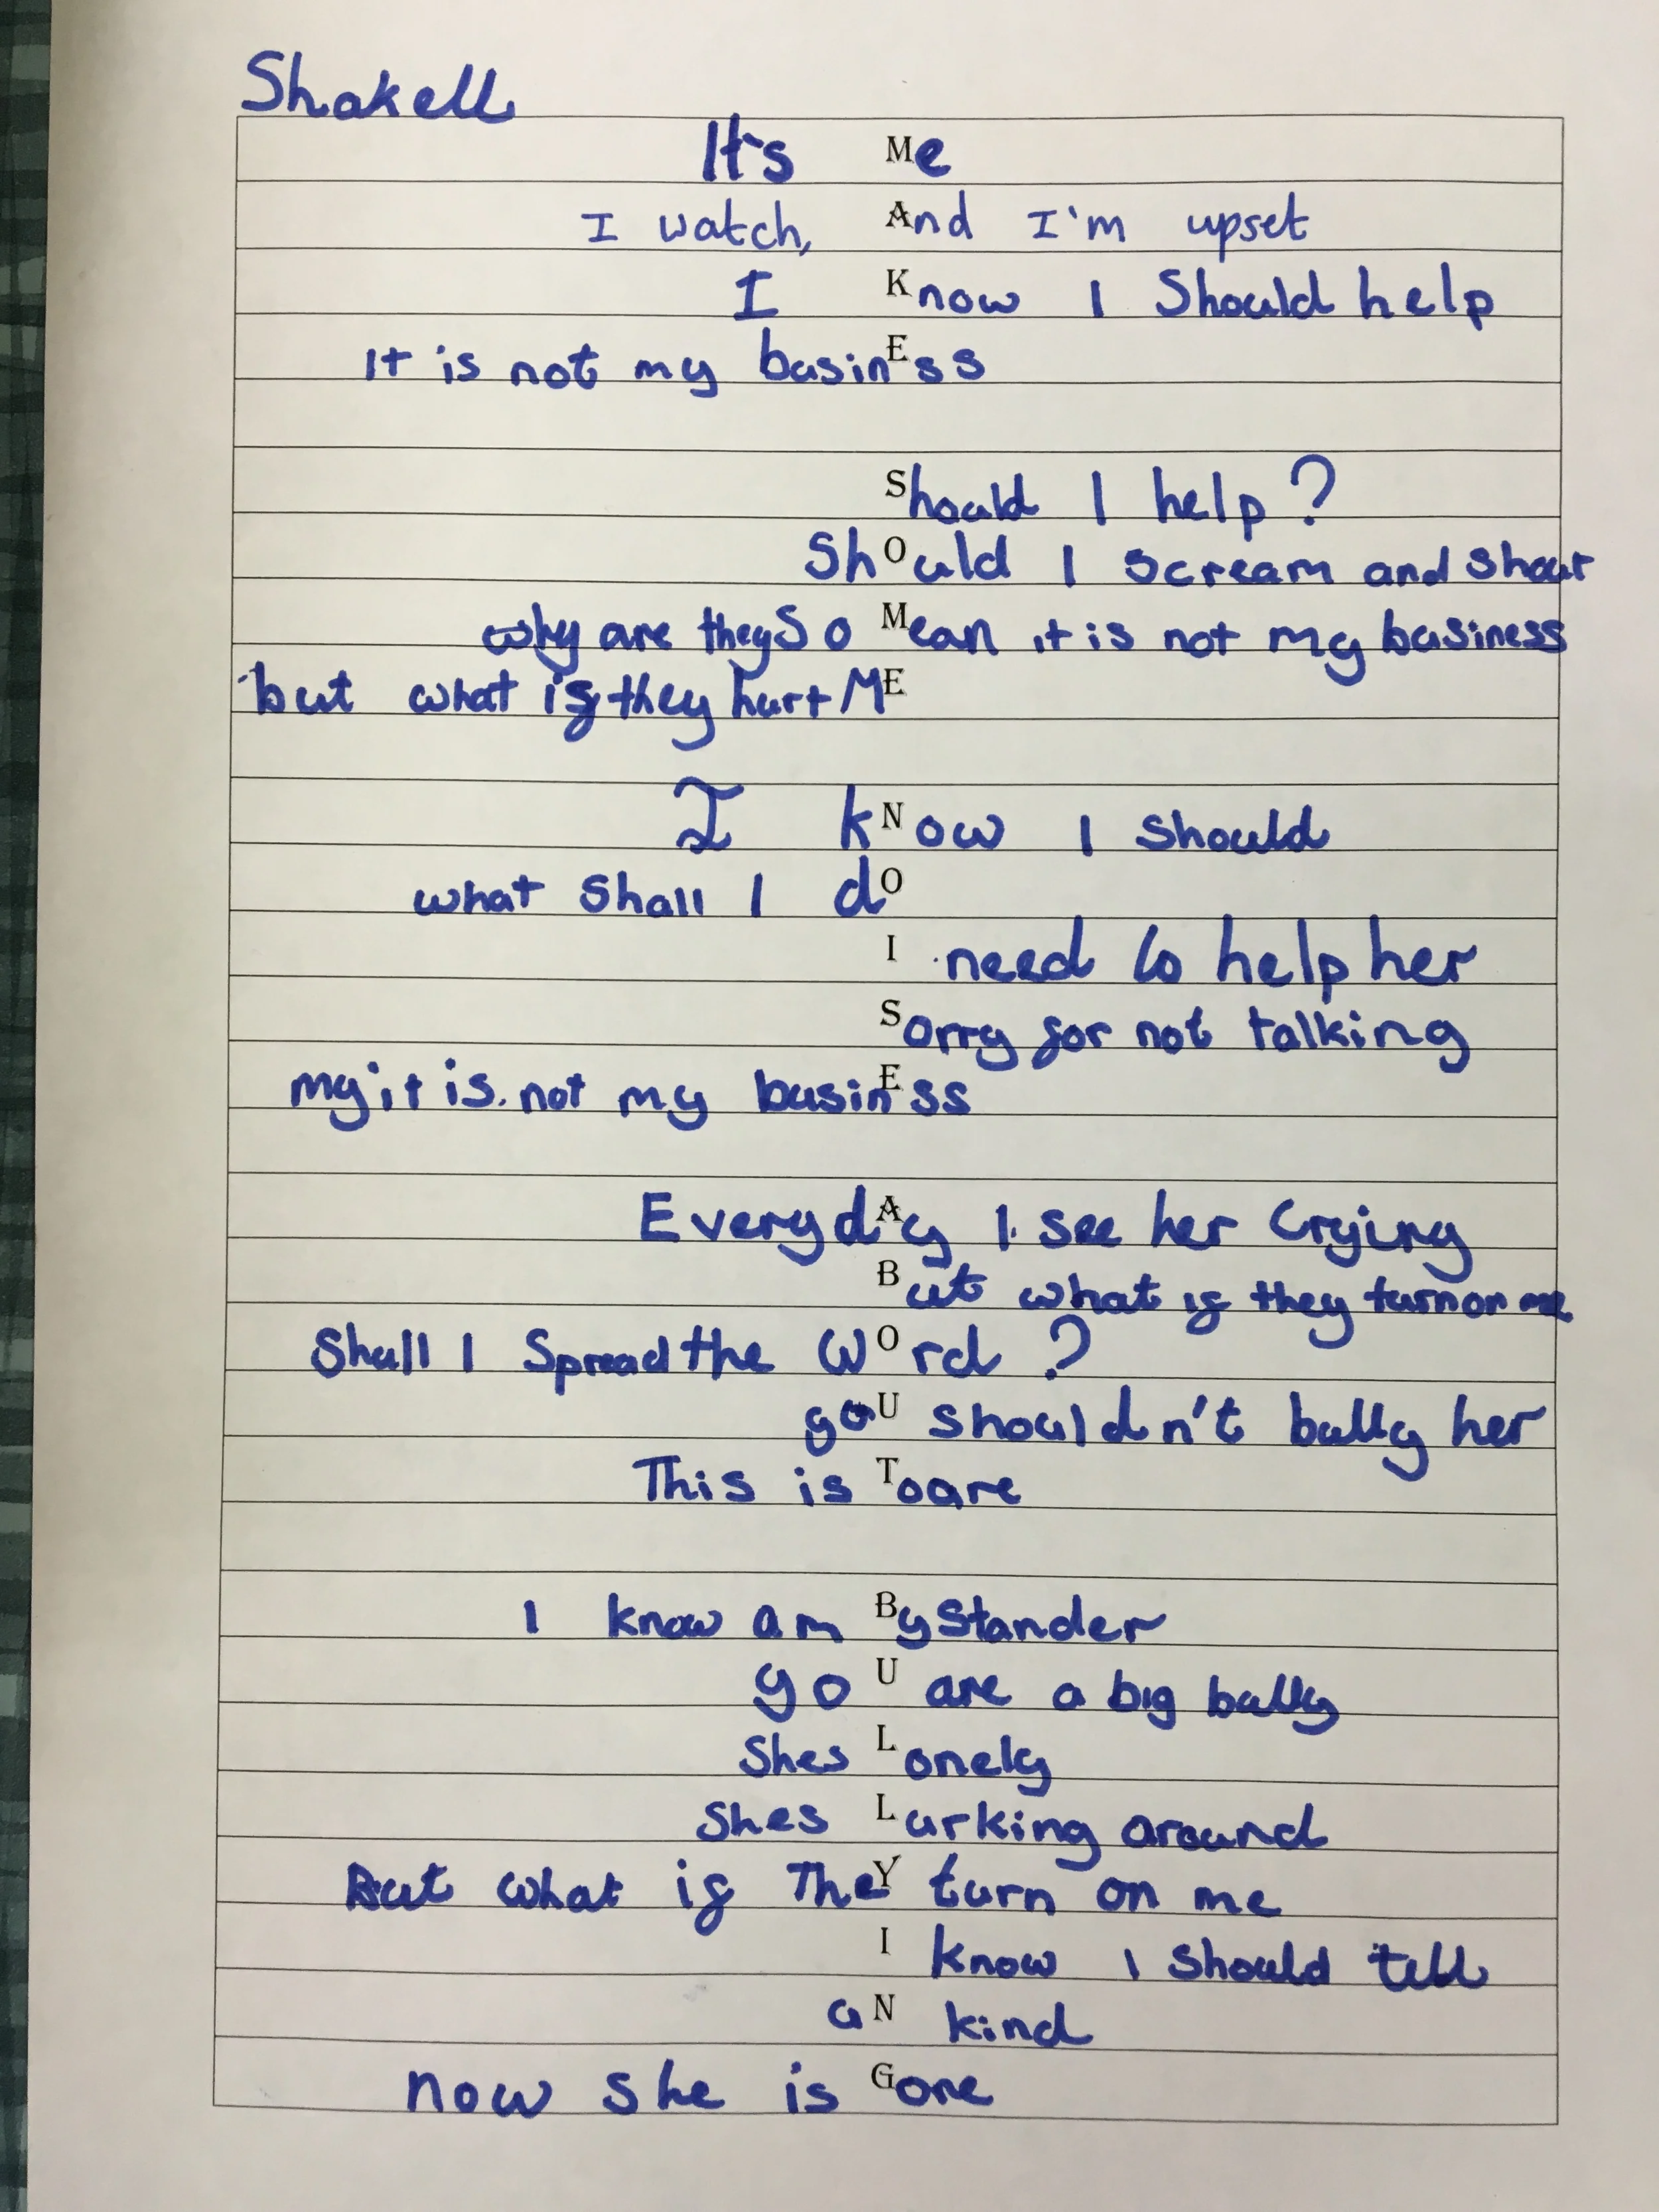 Shakell
It's Me
I watch, And I'm upset
I Know I Should help
It is not my businEss
Should I help?
ShOuld I Scream and Shout
why are they So Mean it is not my business
but what if they hurt ME
I kNow I Should
what Shall I dO
I need to help her
Sorry for not talking
my it is not my businEss
EverydAy I see her Crying
But what if they turn on me
Shall I Spread the WOrd ?
yoU shouldn't bully her
This is Toare
I know am ByStander
yoU are a big bully
Shes Lonely
Shes Lurking around
But what if TheY turn on me
I know I Should tell
aN kind
now she is Gone